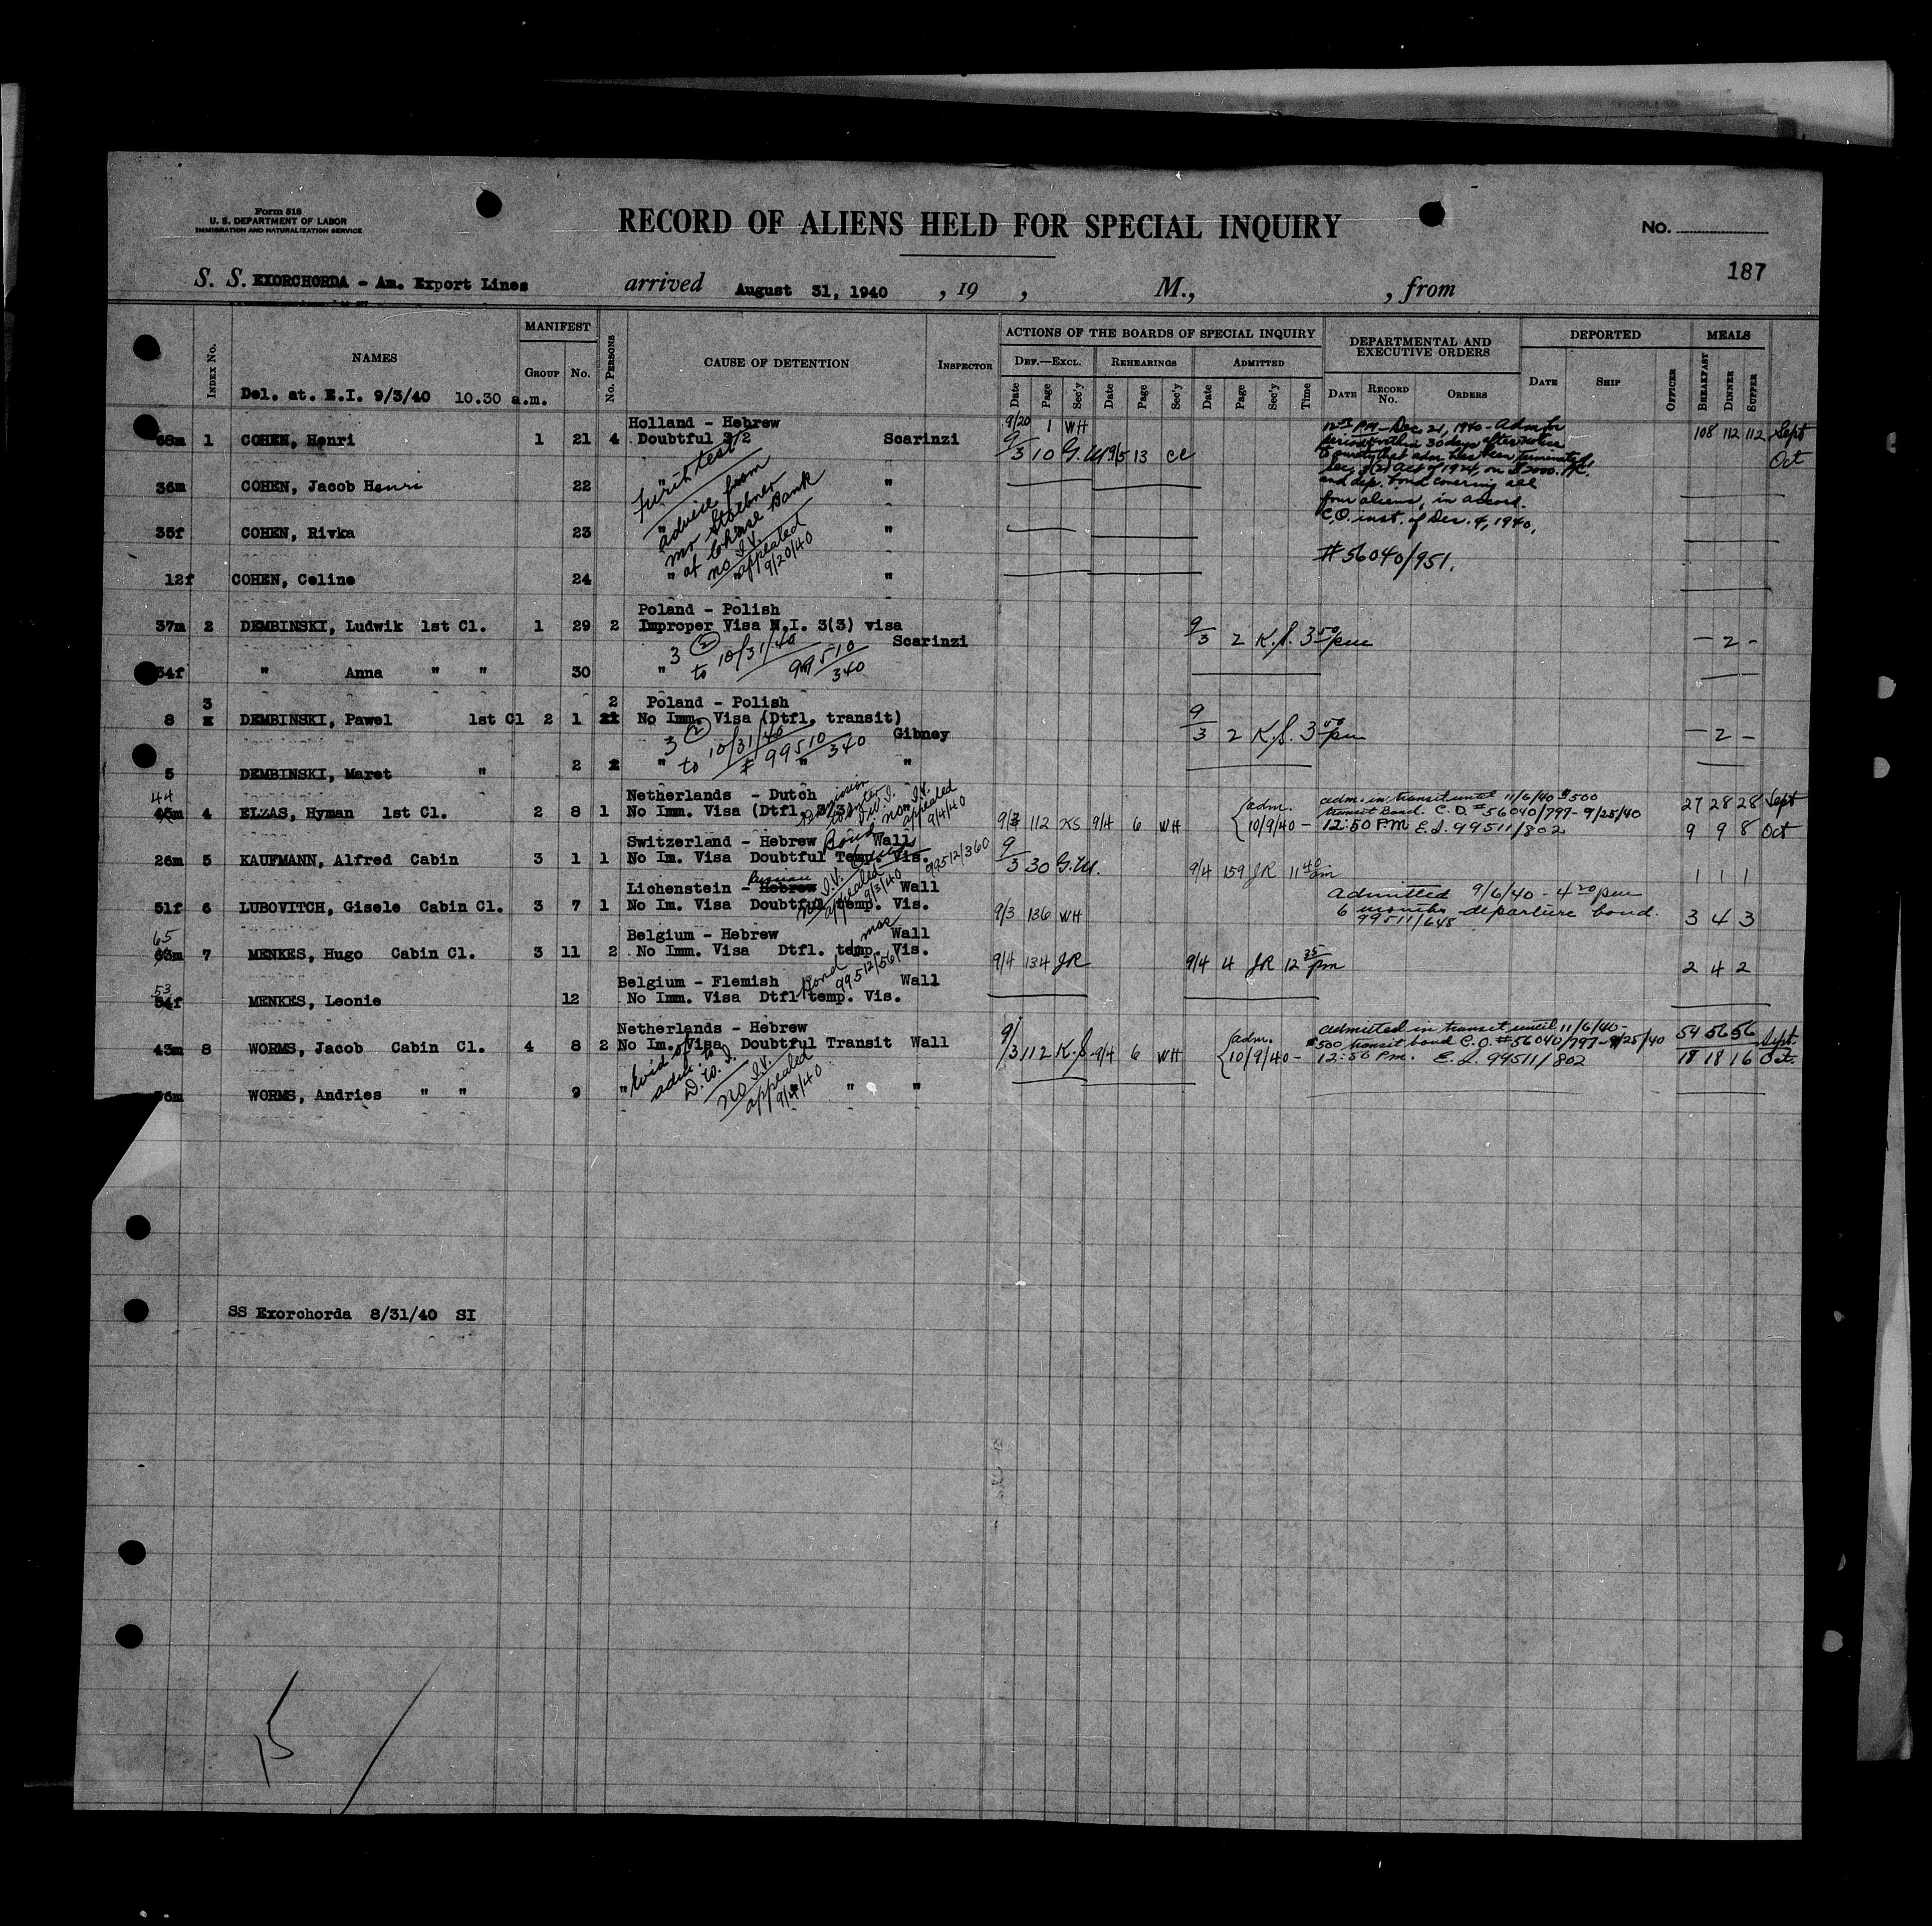 Form 518
U. S. DEPARTMENT OF LABOR
IMMIGRATION AND NATURALIZATION SERVICE
RECORD OF ALIENS HELD FOR SPECIAL INQUIRY
No.
187
S. S. EXORCHORDA - Am. Export Lines arrived August 31, 1940 , 19 , M., , from
INDEX No. NAMES MANIFEST GROUP No. No. PERSONS CAUSE OF DETENTION INSPECTOR
ACTIONS OF THE BOARDS OF SPECIAL INQUIRY
DEF.—EXCL. REHEARINGS ADMITTED
Date Page Sec'y Date Page Sec'y Date Page Sec'y Time
DEPARTMENTAL AND EXECUTIVE ORDERS
DATE RECORD No. ORDERS
DEPORTED
DATE SHIP OFFICER
MEALS
BREAKFAST DINNER SUPPER
Del. at. E.I. 9/3/40 10.30 a.m.
Holland - Hebrew 9/20 1 WH
68m 1 COHEN, Henri 1 21 4 Doubtful 3/2 Scarinzi 9/3 10 G.W. 9/5 13 108 112 112 Sept
Oct
12 PM - Dec. 21, 1940 - Adm for
period within 30 days after notice
to surety that adm has been terminated
Sec. 3(2) Act of 1924, on $2000.
and dep. bond covering all
four aliens, in accord.
C.O. inst. of Dec. 4, 1940.
#56040/951.
36m COHEN, Jacob Henri 22 "
35f COHEN, Rivka 23 " "
12f COHEN, Celine 24 " "
advice from
Mr
at Chase Bank
no I.V.
appealed
9/20/40
Poland - Polish
37m 2 DEMBINSKI, Ludwik 1st Cl. 1 29 2 Improper Visa N.I. 3(3) visa
Scarinzi 9/3 2 K.S. 3 50 pm - 2 -
3 (2)
to 10/31/40
99510
340
34f " Anna " " 30 "
3 2 Poland - Polish
8 DEMBINSKI, Pawel 1st Cl 2 1 No Imm. Visa (Dtfl. transit)
Gibney 9/3 2 K.S. 3 50 pm - 2 -
3 (2)
to 10/31/40
# 99510
340
5 DEMBINSKI, Maret " 2 " " "
44 Netherlands - Dutch
45m 4 ELZAS, Hyman 1st Cl. 2 8 1 No Imm. Visa (Dtfl. 3/3) " 9/3 112 KS 9/4 6 WH
no I.V.
appealed
9/4/40
adm. 10/9/40 - adm. in transit until 11/6/40 $500
transit bond. C.O. #56040/797 - 9/25/40
12:50 PM E.I. 99511/802
27 28 28 Sept
9 9 8 Oct
Switzerland - Hebrew Wall
26m 5 KAUFMANN, Alfred Cabin 3 1 1 No Im. Visa Doubtful Temp. Vis. 9/3 30 G.W. 9/4 159 JR 11 40 am 1 1 1
Bond
99512/360
Lichenstein - Hebrew Russian Wall
51f 6 LUBOVITCH, Gisele Cabin Cl. 3 7 1 No Im. Visa Doubtful temp. Vis. 9/3 136 WH 3 4 3
no I.V.
appealed
9/3/40
Admitted 9/6/40 - 4 20 pm
6 months departure bond.
99511/648
65 Belgium - Hebrew Wall
63m 7 MENKES, Hugo Cabin Cl. 3 11 2 No Imm. Visa Dtfl. temp. Vis. 9/4 134 JR 9/4 4 JR 12 35 pm 2 4 2
Bond
99512/56
53 Belgium - Flemish Wall
54f MENKES, Leonie 12 No Imm. Visa Dtfl temp. Vis.
Netherlands - Hebrew
43m 8 WORMS, Jacob Cabin Cl. 4 8 2 No Im. Visa Doubtful Transit Wall 9/3 112 K.S. 9/4 6 WH
adm. 10/9/40 - admitted in transit until 11/6/40 -
$500 transit bond C.O. #56040/797 - 9/25/40
12:50 P.m. E.I. 99511/802
54 56 56 Sept.
18 18 16 Oct.
76m WORMS, Andries " " 9 " " " "
no I.V.
appealed
9/4/40
SS Exorchorda 8/31/40 SI
15